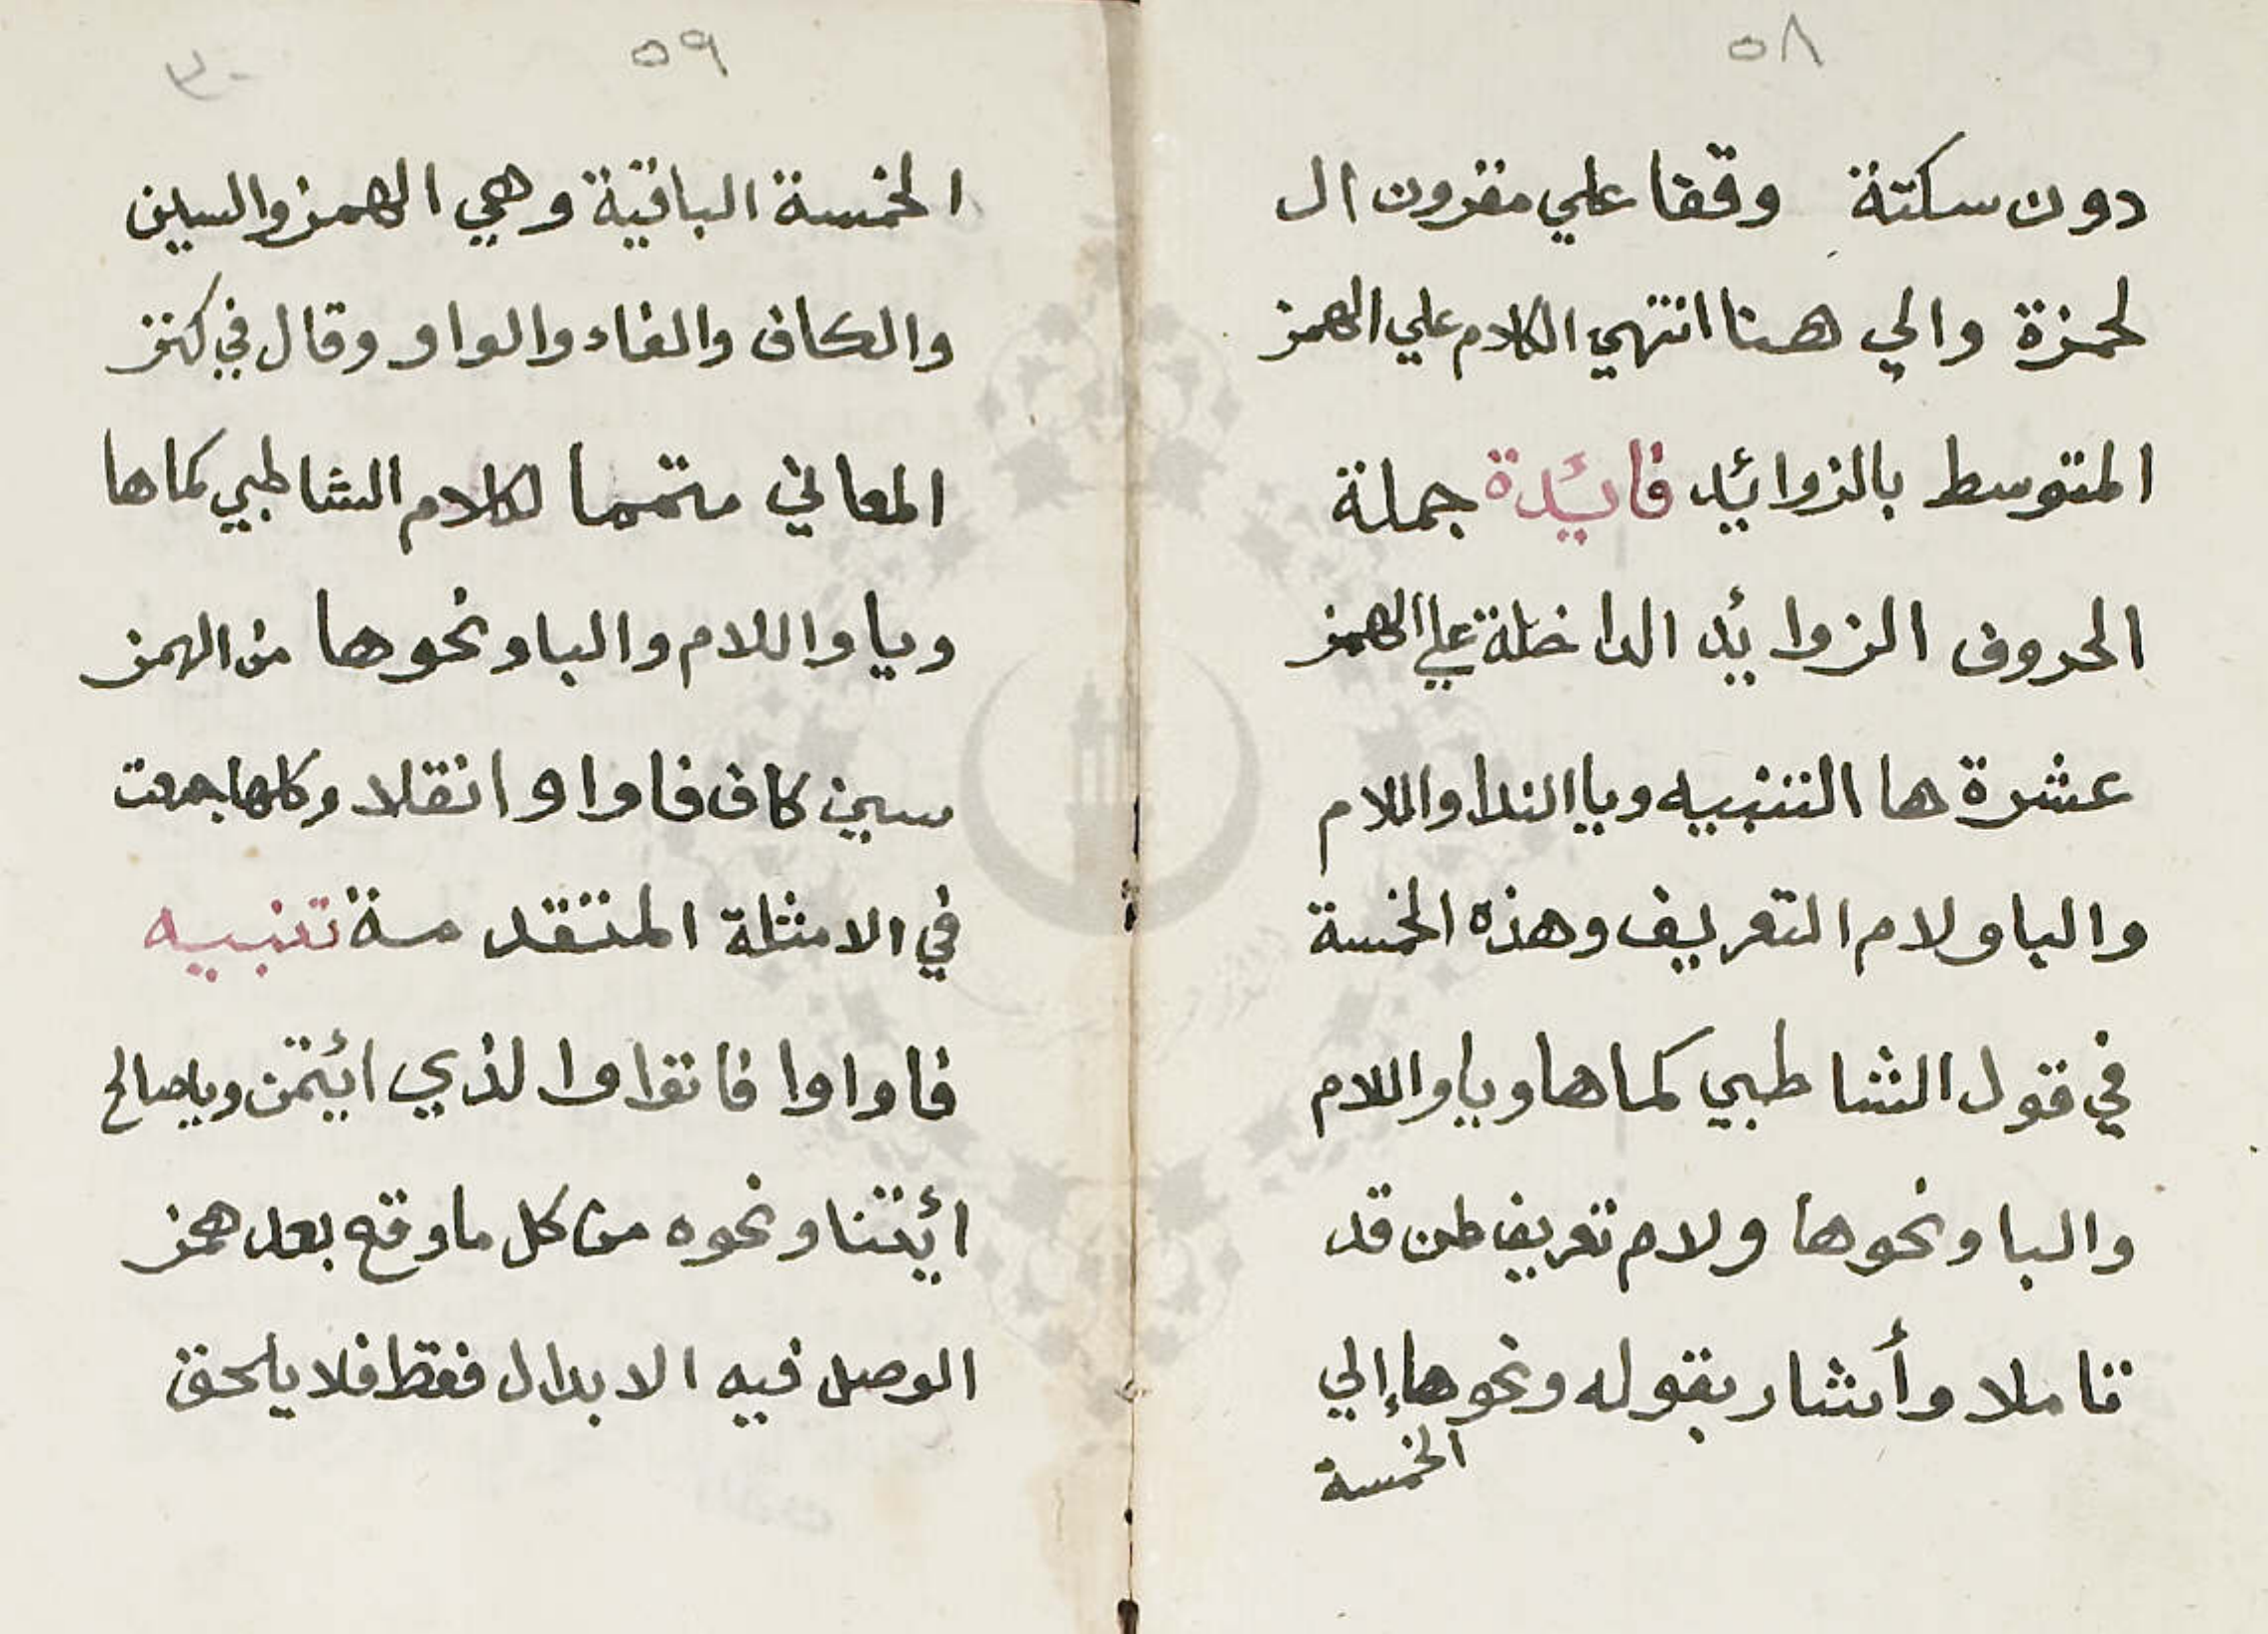 ٥٨
دون سكتة وقفا علي مقرون ال
لحمزة والي هنا انتهي الكلام علي الهمز
المتوسط بالزوائيد فائيدة جملة
الحروف الزوائيد الداخلة علي الهمز
عشرة ها التنبيه ويا الندا واللام
والبا ولام التعريف وهذه الخمسة
في قول الشاطبي كماها ويا واللام
والبا ونحوها ولام تعريف لمن قد
تاملا وأشار بقوله ونحوها إلي
الخمسة
٥٩
الخمسة الباقية وهي الهمز والسين
والكاف والفاء والواو وقال في كنز
المعاني متمما لكلام الشاطبي كماها
ويا واللام والبا ونحوها من الهمز
سين كاف فا واو انقلا وكلها جمعت
في الامثلة المتقدمة تنبيه
فاووا فاتوا والذي ائيتمن ويا صالح
ائيتنا ونحوه من كل ما وقع بعد همز
الوصل فيه الابدال فقط فلا يلحق